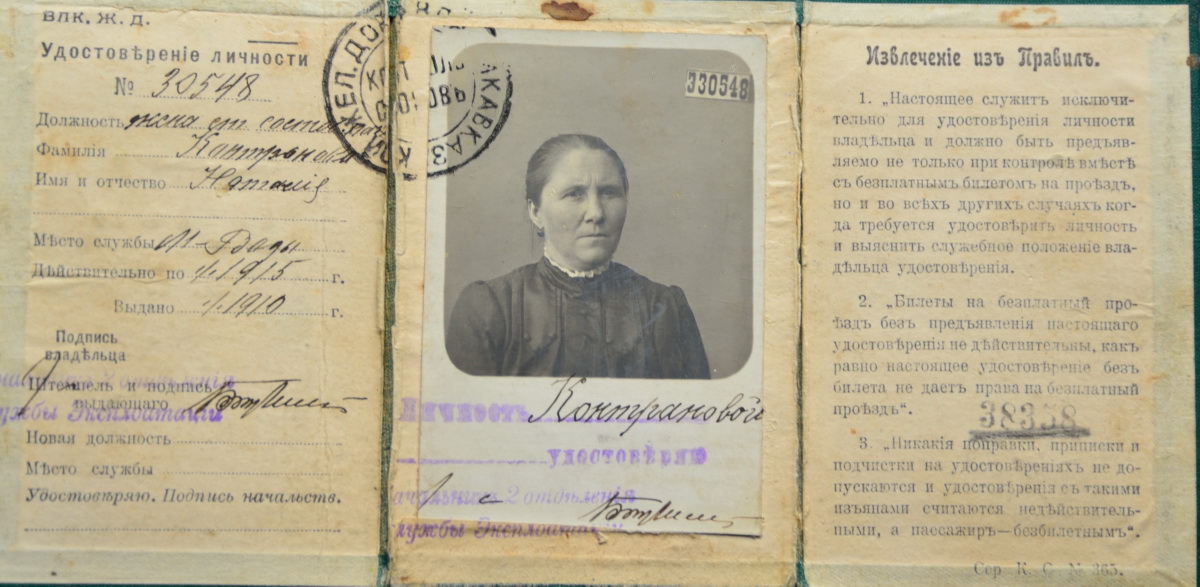 Влк. Ж. Д.
Удостовѣреніе личности
№ 30548
Должность жена ст.
Фамилія Контранова
Имя и отчество Наталія
Мѣсто службы М-Воды
Дѣйствительно по 1/1 1915 г.
Выдано 1/1 1910 г.
Подпись
владѣльца
Штемпель и подпись
выдающаго
2 отдѣленія
службы Эксплоатаціи
Новая должность
Мѣсто службы
Удостовѣряю. Подпись начальств.
330548
Личность Контрановой
удостовѣряю
Начальникъ 2 отдѣленія
службы Эксплоатаціи
Извлеченіе изъ Правилъ.
1. „Настоящее служитъ исключи-
тельно для удостовѣренія личности
владѣльца и должно быть предъяв-
ляемо не только при контролѣ вмѣстѣ
съ безплатнымъ билетомъ на проѣздъ,
но и во всѣхъ другихъ случаяхъ ког-
да требуется удостовѣрить личность
и выяснить служебное положеніе вла-
дѣльца удостовѣренія.
2. „Билеты на безплатный про-
ѣздъ безъ предъявленія настоящаго
удостовѣренія не дѣйствительны, какъ
равно настоящее удостовѣреніе безъ
билета не даетъ права на безплатный
проѣздъ“.
38358
3. „Никакія поправки, приписки и
подчистки на удостовѣреніяхъ не до-
пускаются и удостовѣренія съ такими
изъянами считаются недѣйствитель-
ными, а пассажиръ—безбилетнымъ“.
Сер. К. С. № 365.